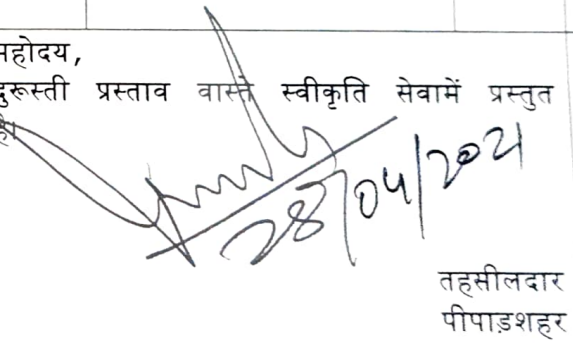 महोदय,
दुरूस्ती प्रस्ताव वास्ते स्वीकृति सेवामें प्रस्तुत
है।
28/04/2021
तहसीलदार
पीपाड़शहर